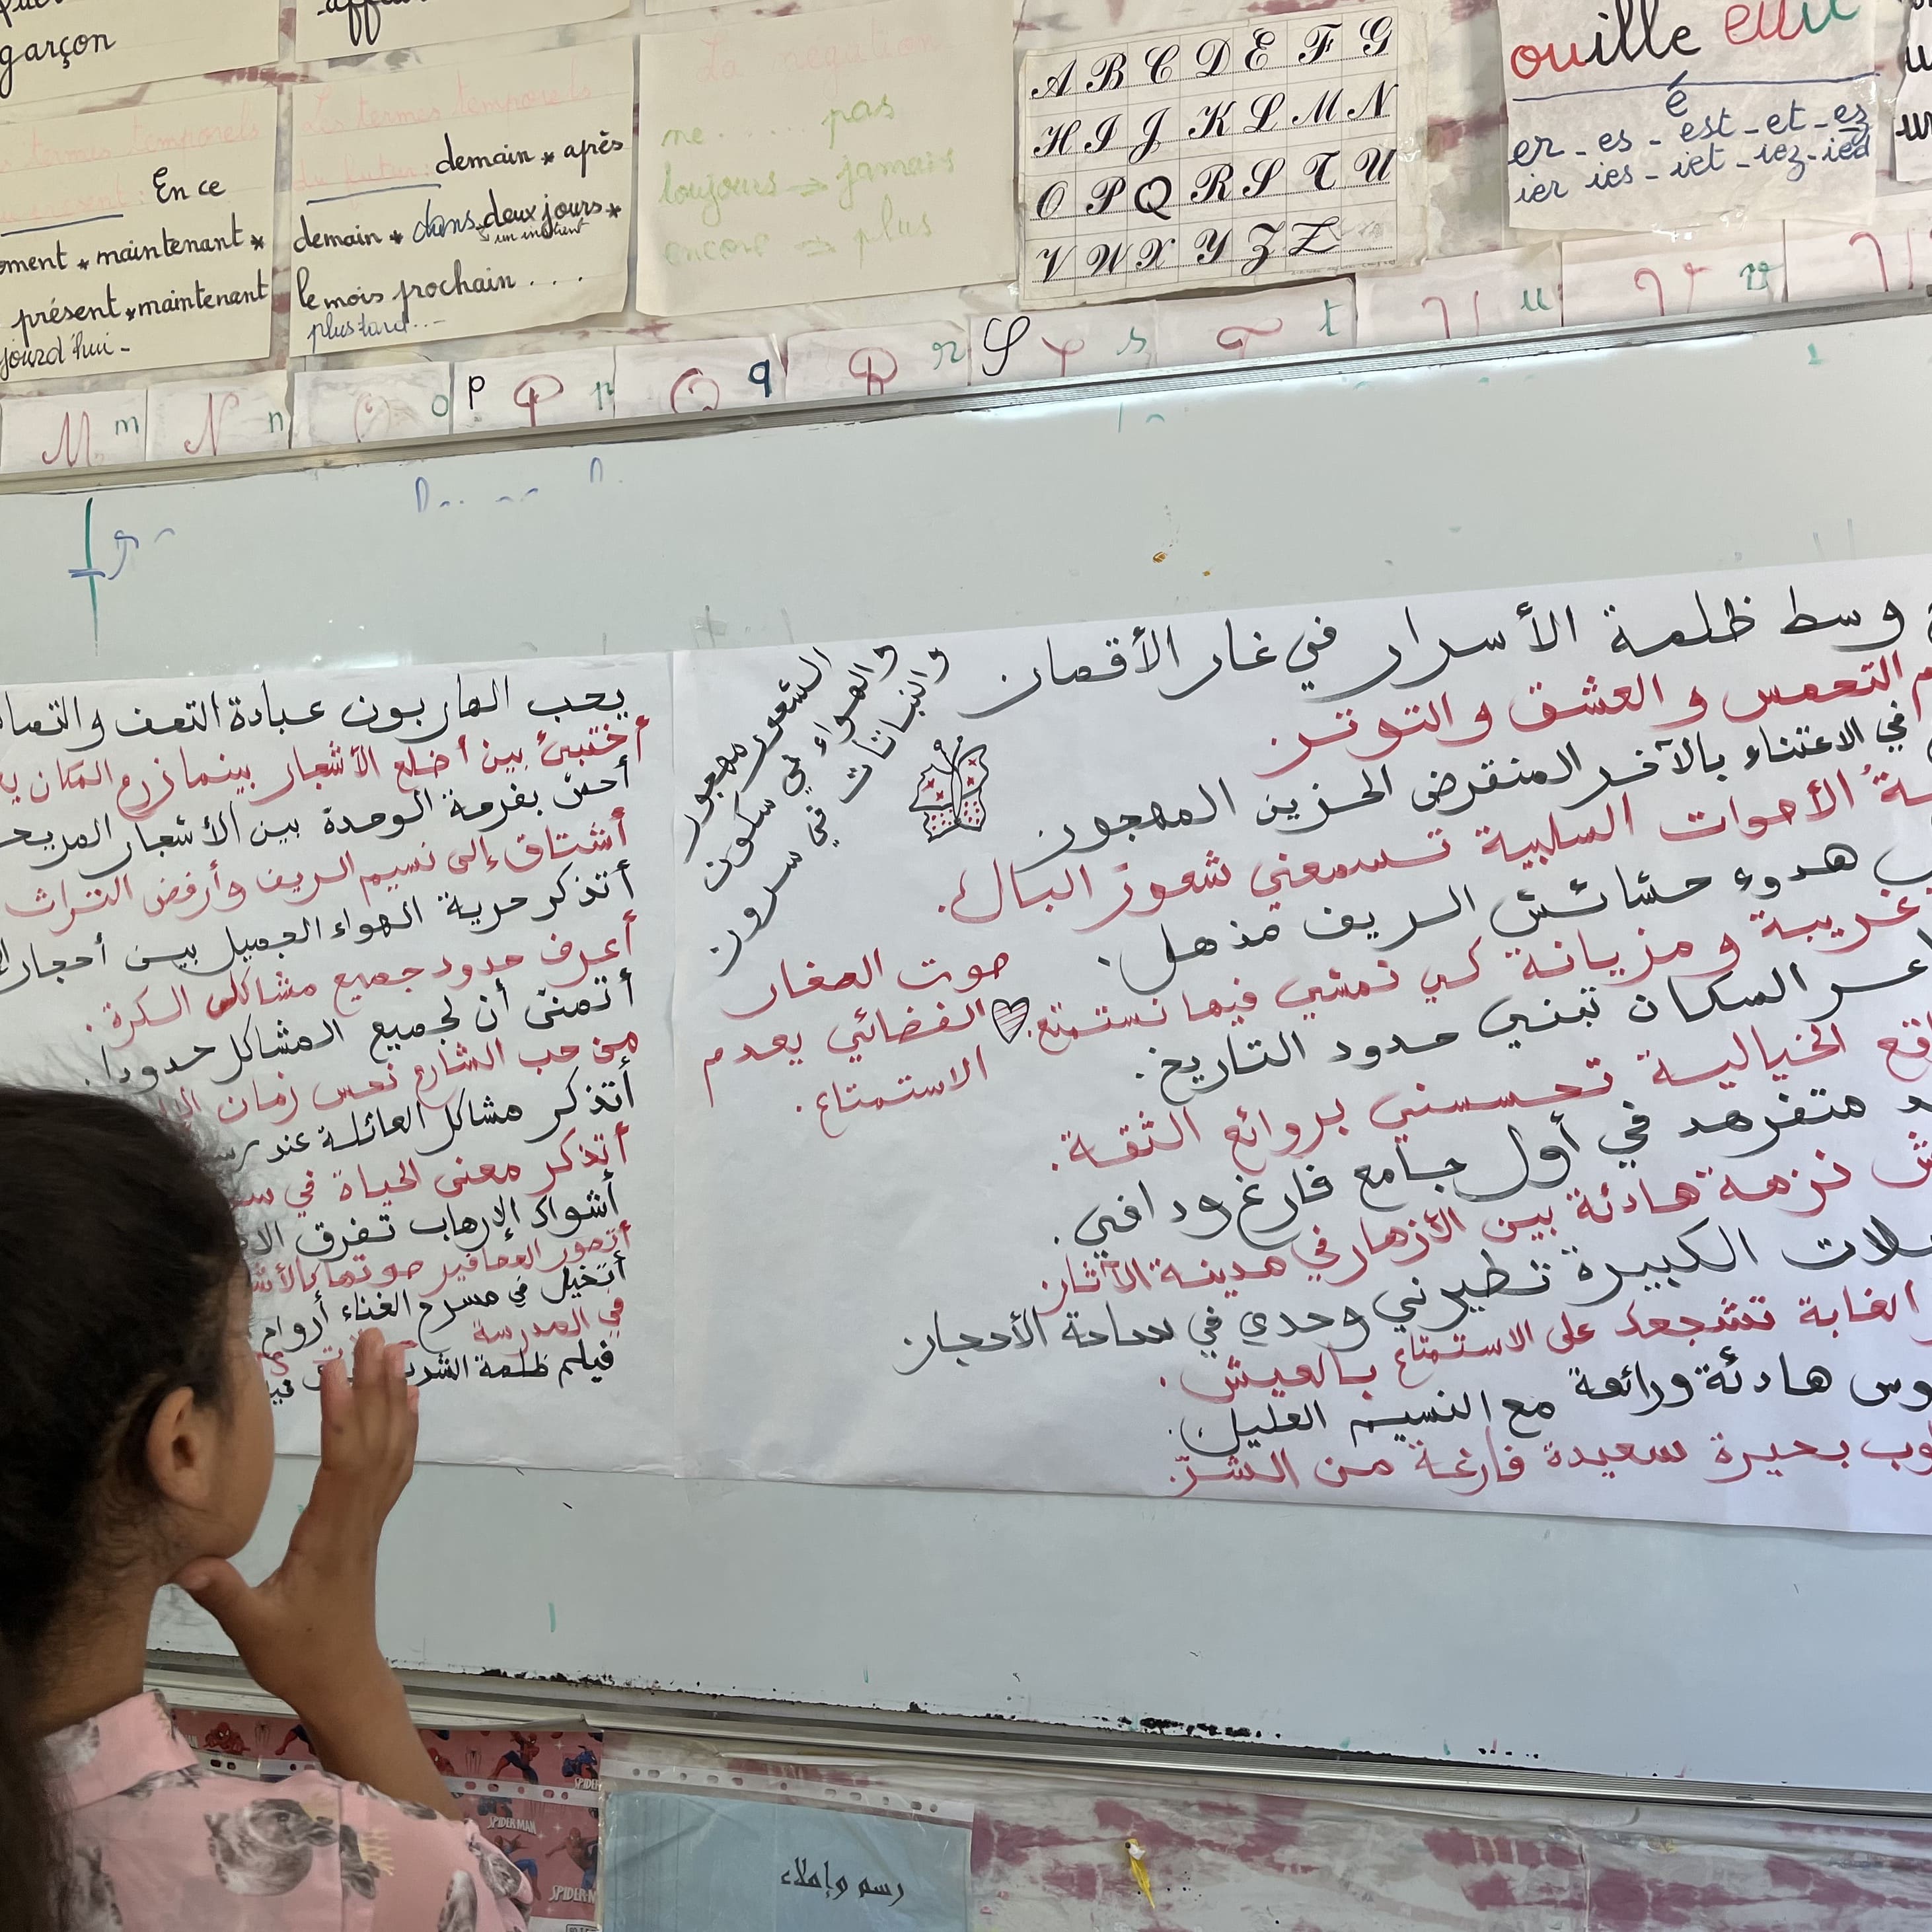 garçon
En ce
maintenant *
présent * maintenant
Les termes temporels
du futur : demain * après
demain * dans deux jours *
un instant
le mois prochain . . .
plus tard...
La negation
ne ...... pas
toujours → jamais
encore → plus
A B C D E F G
H I J K L M N
O P Q R S T U
V W X Y Z
ouille euil
é
er - es - est - et - ez
ier ies - iet - iez - ied
M m N n O o P p Q q R r S s T t U u V v
وسط ظلمة الأسرار في غار الأقمار
التحمس و العشق و التوتر.
في الاعتناء بالآخر المنقرض الحزين المهجور
الأصوات السلبية تسمعني شعور البال.
هدوء حشائش الريف مذهل.
غريبة و مزيانة كي نمشي فيها نستمتع.
السكان تبني حدود التاريخ.
الخيالية تحسسني بروائع الثقة.
متفرهد في أول جامع فارغ ودافي.
نزهة هادئة بين الأزهار في مدينة الآثار
الكبيرة تطيرني وحدي في ساحة الأحجار
الغابة تشجعك على الاستمتاع بالعيش.
هادئة ورائعة مع النسيم العليل.
بحيرة سعيدة فارغة من الشر.
الشعور مهجور
والهواء في سكون
والنباتات في سرور
صوت الصغار
الفضائي يعدم
الاستمتاع.
يحب الهاربون عبادة التعف
أختبئ بين أضلع الأشجار بينما زرع المكان
أحس بفرحة الوحدة بين الأشجار
أشتاق إلى نسيم الريف وأرفض التراث
أتذكر حرية الهواء الجميل بين أحجار
أعرف حدود جميع مشاكل الكرة.
أتمنى أن لجميع المشاكل حدودا.
من حب الشارع نحس زمان
أتذكر مشاكل العائلة عند
أتذكر معنى الحياة في
أشواك الإرهاب تفرق
أتصور العصافير صوتها
أتخيل في مسرح الغناء أرواح
في المدرسة
فيلم ظلمة
SPIDER-MAN
رسم وإملاء